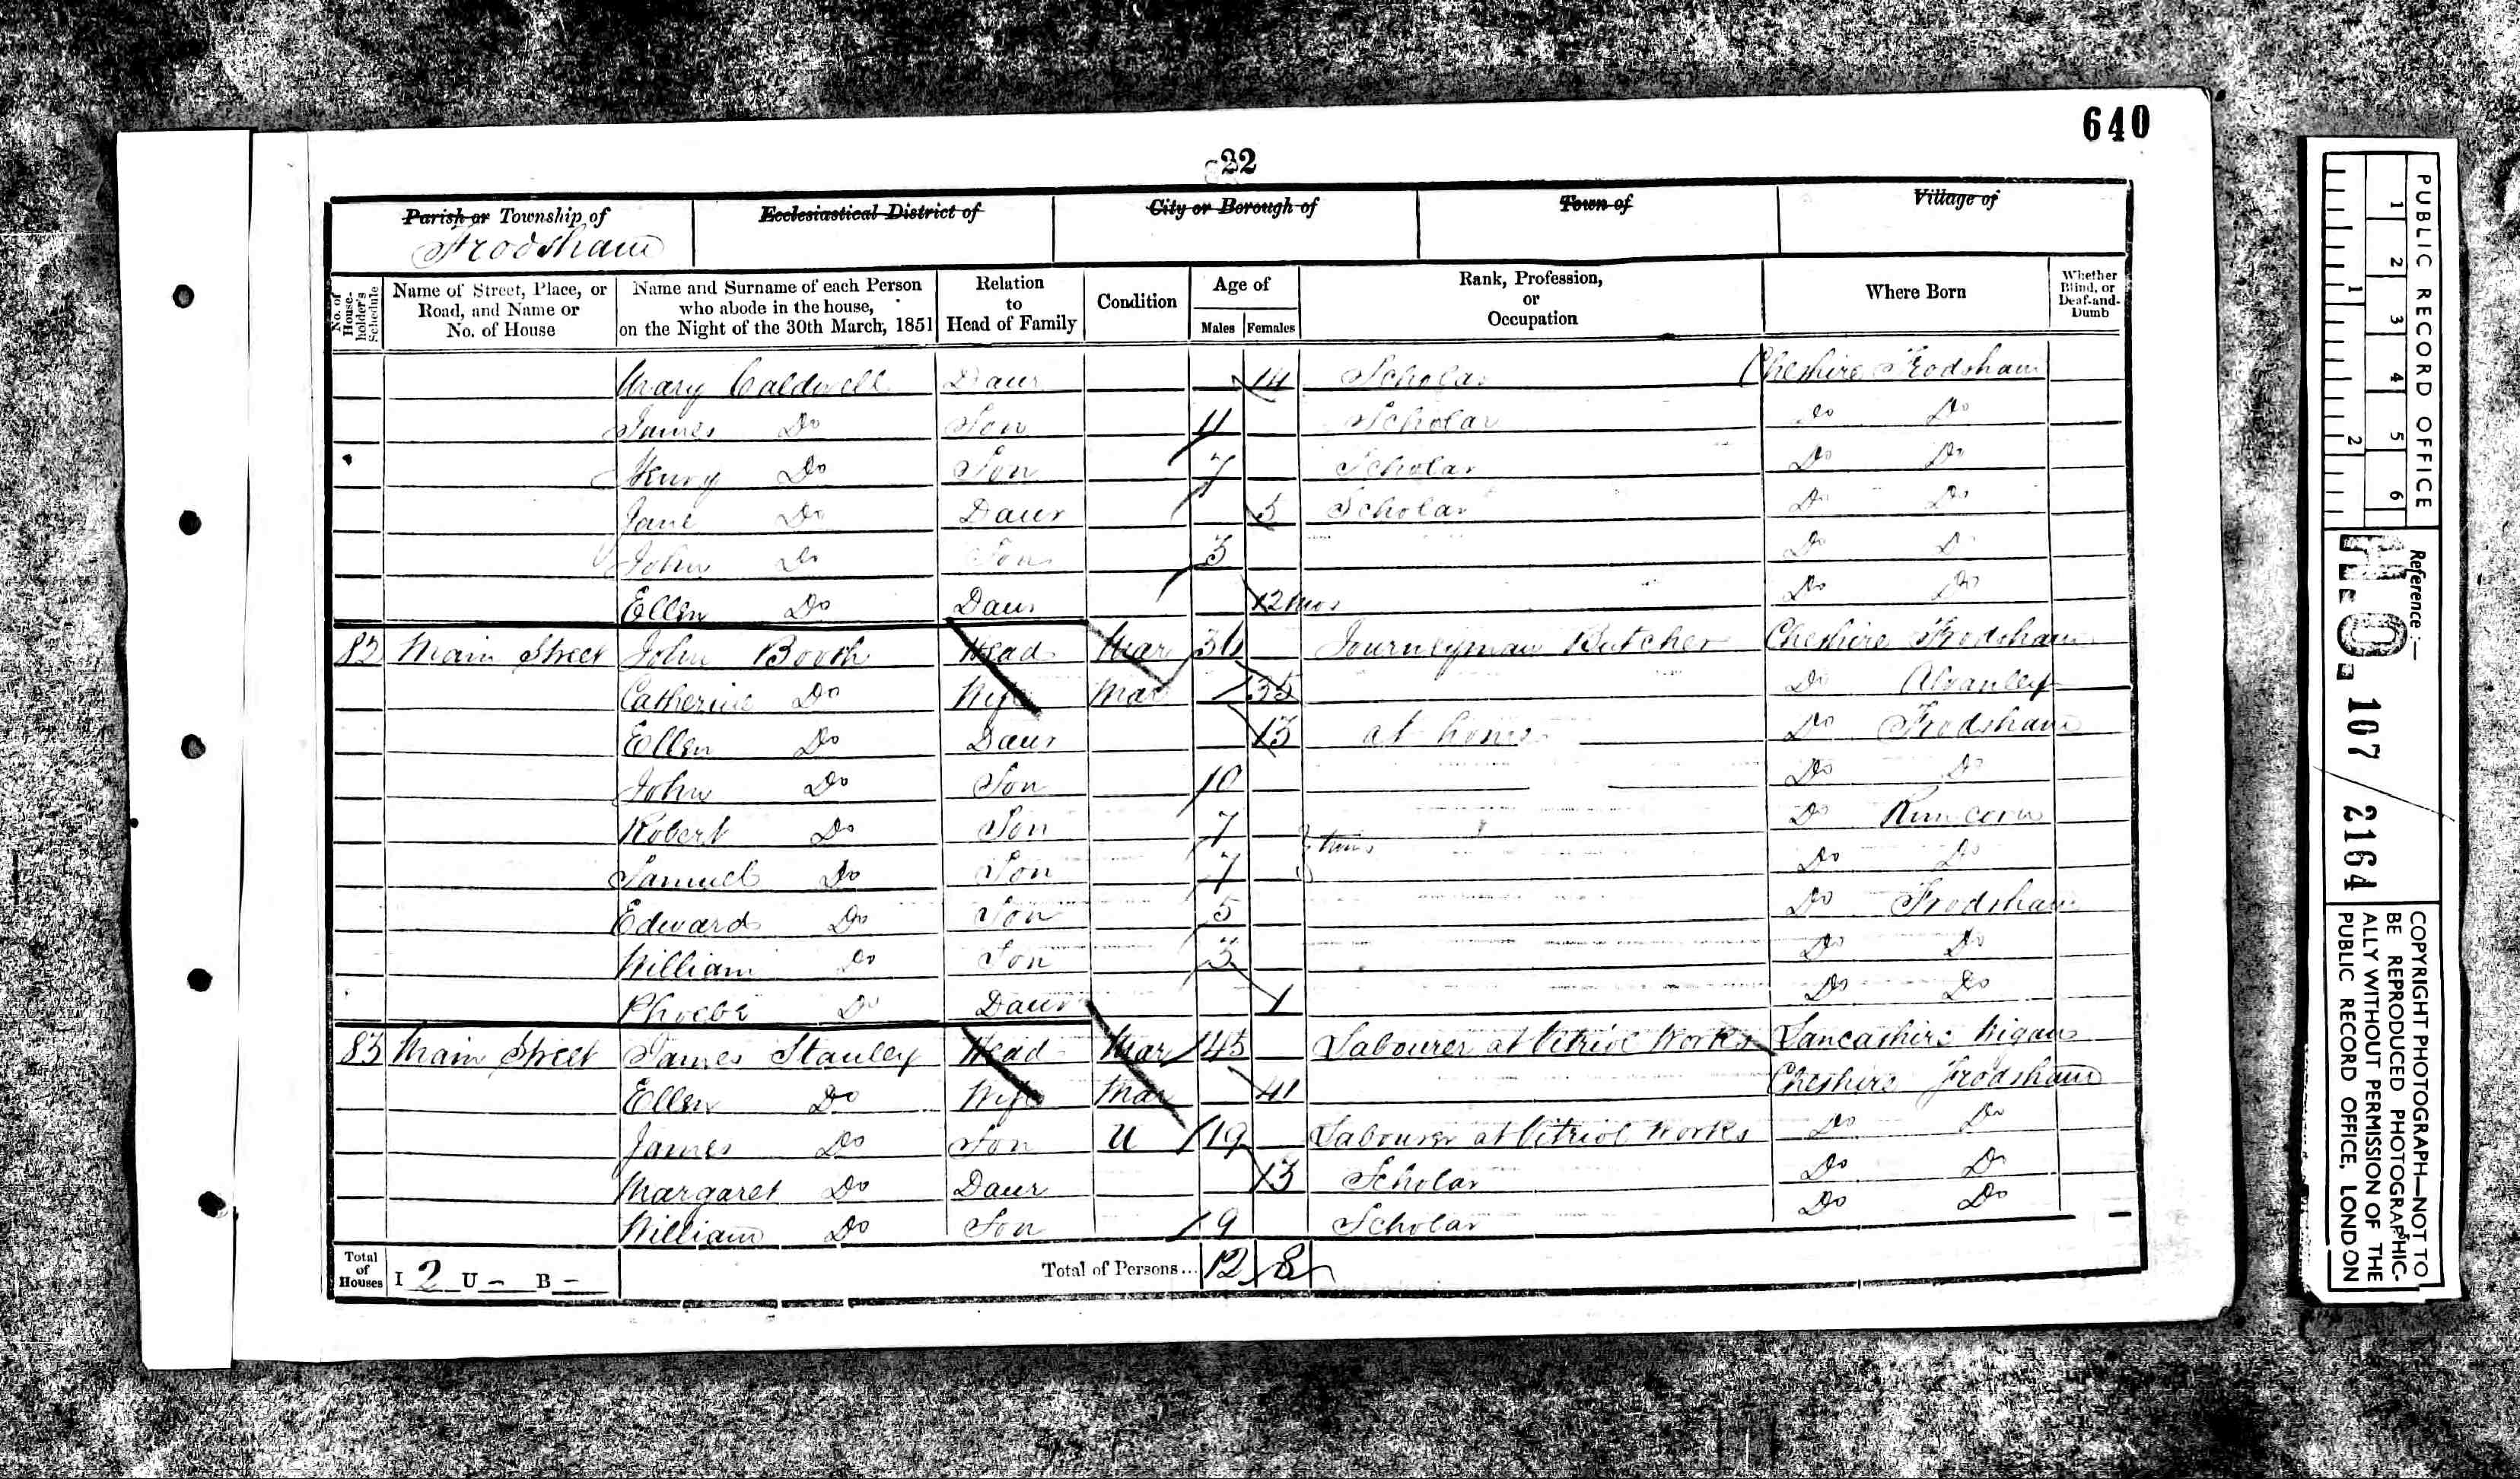 640
22
Parish or Township of Ecclesiastical District of City or Borough of Town of Village of
Frodsham
No. of House-holder's Schedule Name of Street, Place, or Road, and Name or No. of House Name and Surname of each Person who abode in the house, on the Night of the 30th March, 1851 Relation to Head of Family Condition Age of Males Females Rank, Profession, or Occupation Where Born Whether Blind, or Deaf-and-Dumb
Mary Caldwell Daur 14 Scholar Cheshire Frodsham
James Do Son 11 Scholar Do Do
Henry Do Son 7 Scholar Do Do
Jane Do Daur 5 Scholar Do Do
John Do Son 3 Do Do
Ellen Do Daur 12 mos Do Do
82 Main Street John Booth Head Mar 36 Journeyman Butcher Cheshire Frodsham
Catherine Do Wife Mar 35 Do Alvanley
Ellen Do Daur 13 at home Do Frodsham
John Do Son 10 Do Do
Robert Do Son 7 Do Runcorn
Samuel Do Son 7 Do Do
Edward Do Son 5 Do Frodsham
William Do Son 3 Do Do
Phoebe Do Daur 1 Do Do
83 Main Street James Stanley Head Mar 45 Labourer at Vitriol Works Lancashire Wigan
Ellen Do Wife Mar 41 Cheshire Frodsham
James Do Son U 19 Labourer at Vitriol Works Do Do
Margaret Do Daur 13 Scholar Do Do
William Do Son 9 Scholar Do Do
Total of Houses I 2 U - B - Total of Persons... 12 8
PUBLIC RECORD OFFICE
1 2 3 4 5 6
1 2
Reference:-
H.O. 107 / 2164
COPYRIGHT PHOTOGRAPH—NOT TO
BE REPRODUCED PHOTOGRAPHIC-
ALLY WITHOUT PERMISSION OF THE
PUBLIC RECORD OFFICE, LONDON